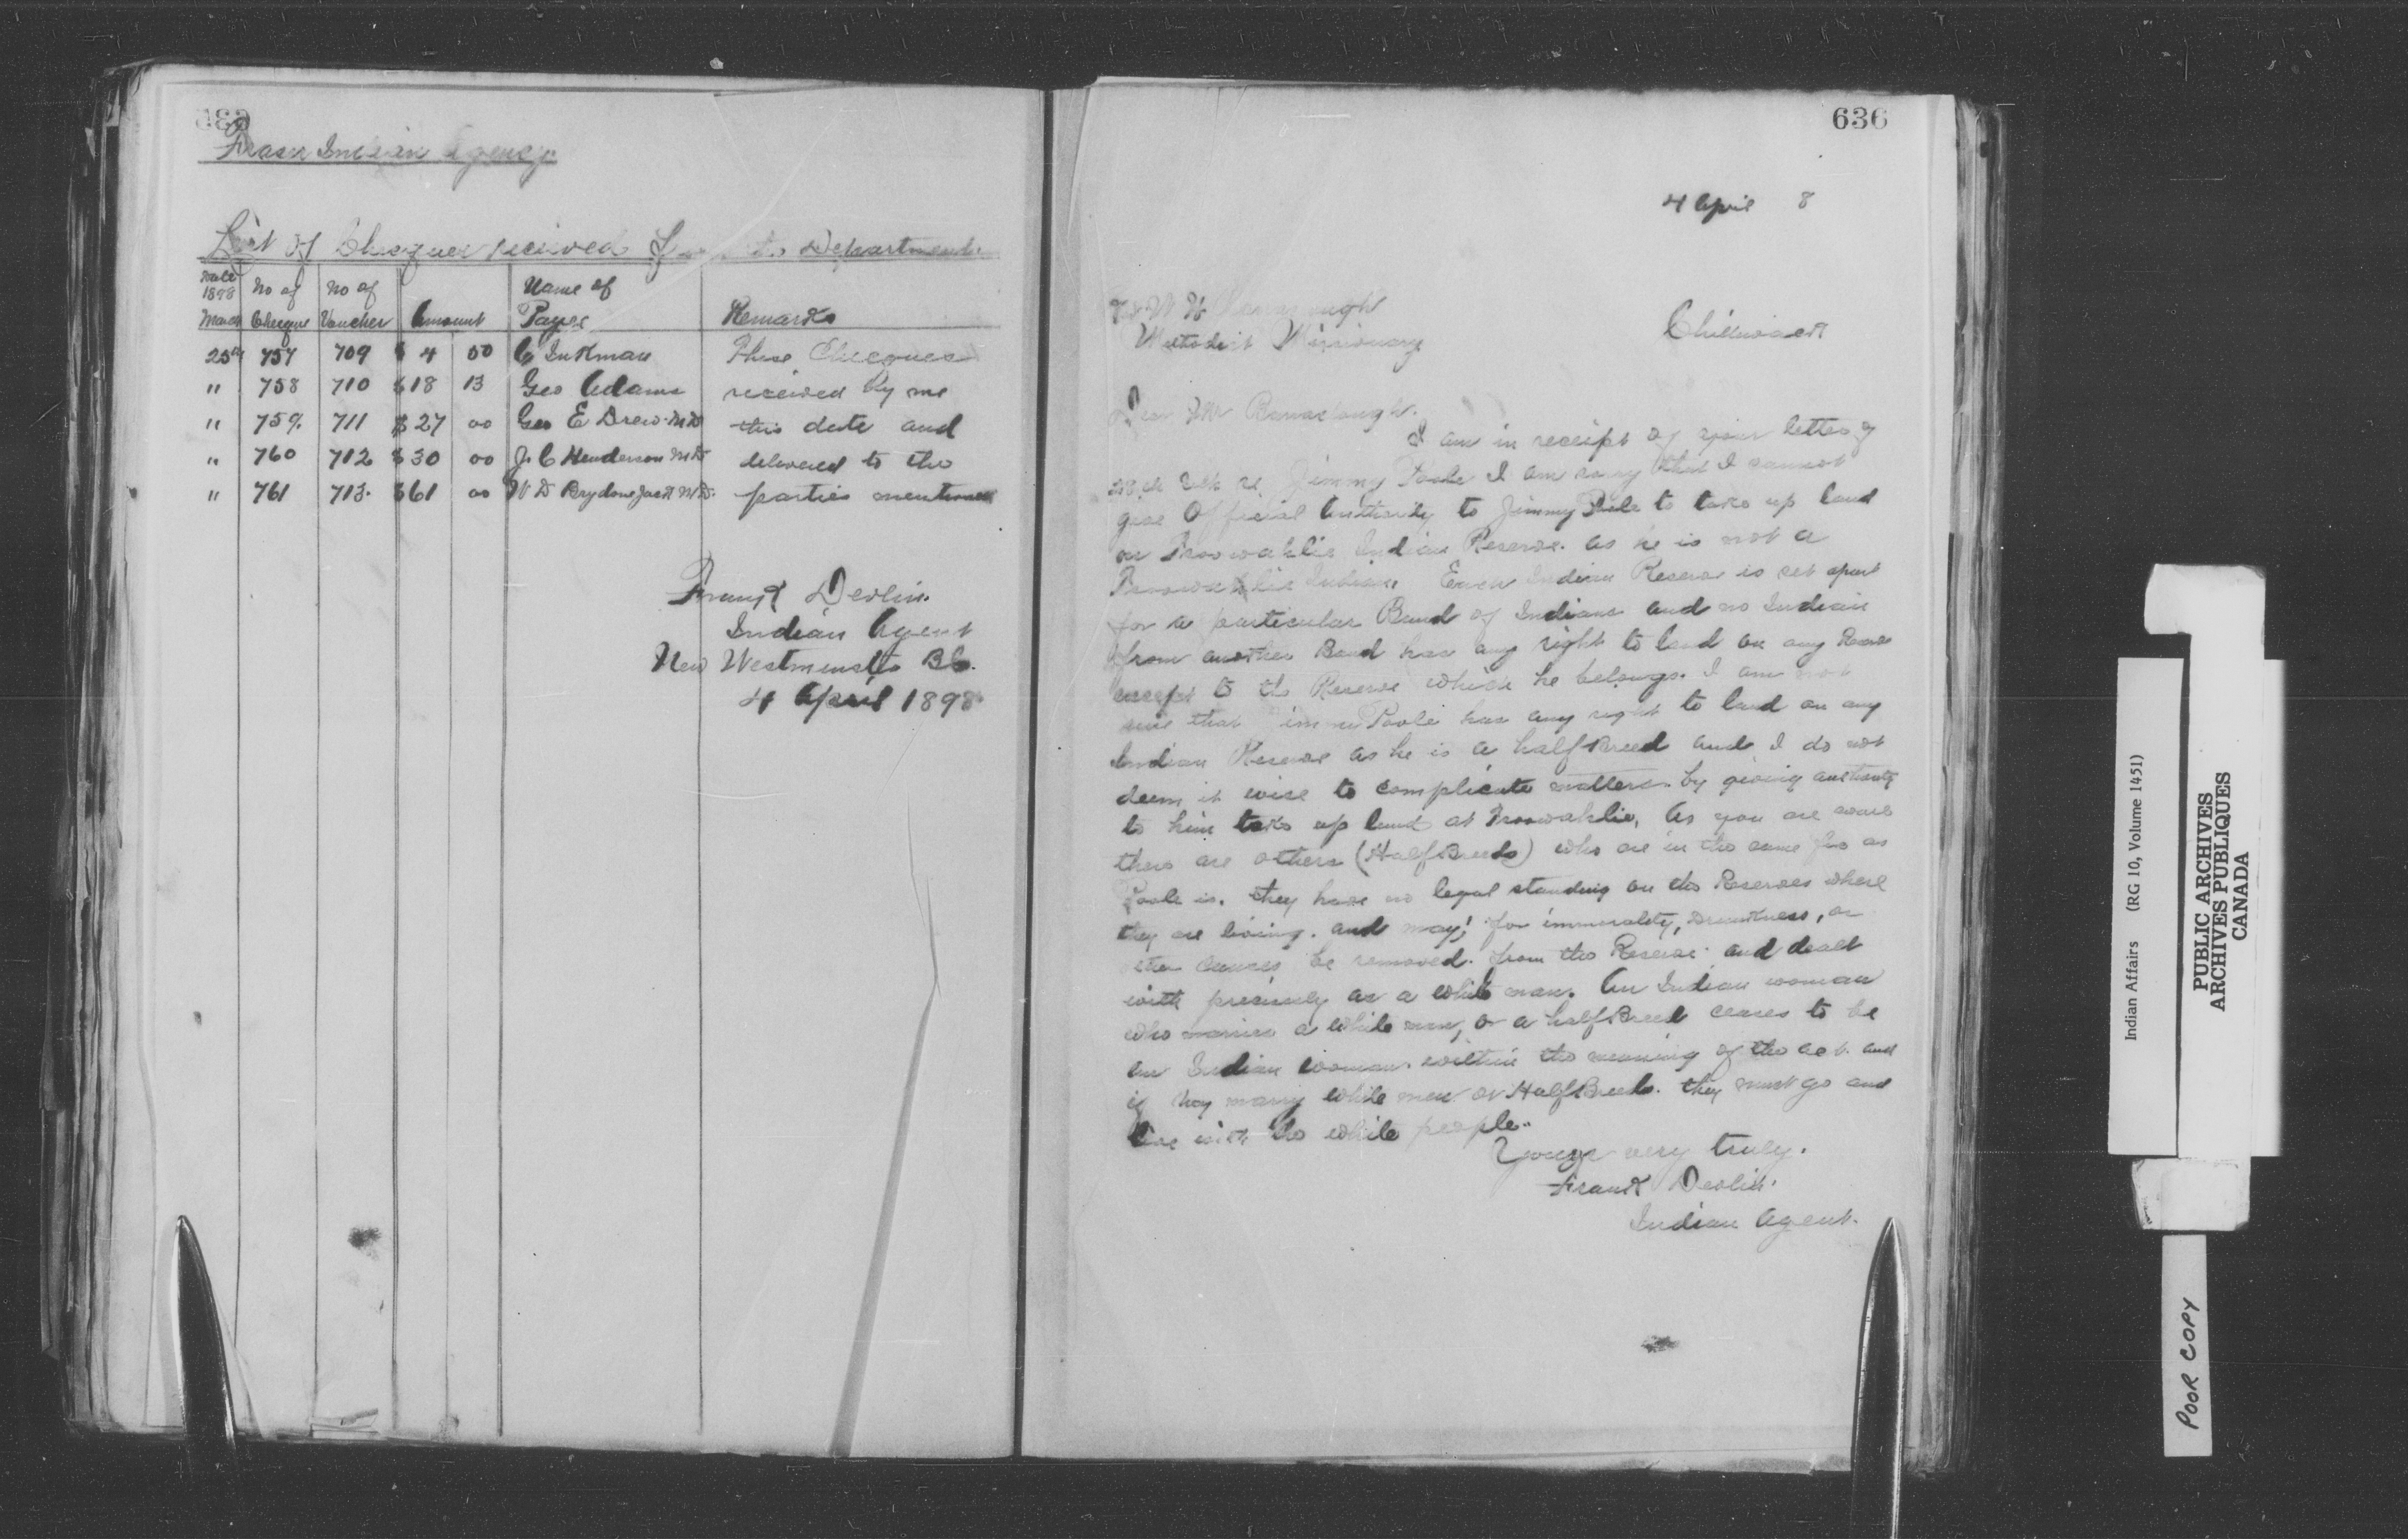 Fraser Indian Agency
List of Cheques received from the Department
Date 1898 March | No of Cheque | No of Voucher | Amount | Name of Payee | Remarks
25th 757 709 $ 4 00 C Inkman These Cheques
" 758 710 $18 13 Geo Adams received by me
" 759. 711 $27 00 Geo E Drew. M D this date and
" 760 712 $30 00 J. C Henderson M D delivered to the
" 761 713. $61 00 W D Brydone Jack M D. parties mentioned
Frank Devlin.
Indian Agent
New Westminster B C.
4 April 1898
636
4 April 8
Methodist Missionary
Chilliwack
Dear Mr Barraclough.
I am in receipt of your letter of
28th re Jimmy Poole I am sorry that I cannot
give Official Authority to Jimmy Poole to take up land
on Tsoowahlie Indian Reserve. as he is not a
Tsoowahlie Indian. Each Indian Reserve is set apart
for a particular Band of Indians and no Indian
from another Band has any right to land on any Reserve
except to the Reserve which he belongs. I am not
sure that Jimmy Poole has any right to land on any
Indian Reserve as he is a half Breed and I do not
deem it wise to complicate matters by giving authority
to him take up land at Tsoowahlie, As you are aware
there are others (Half Breeds) who are in the same as
Poole is. they have no legal standing on the Reserves where
they are living. and may, for immorality, Drunkness, or
other be removed. from the Reserve and dealt
with precisely as a white man. An Indian woman
who marries a white man, or a half Breed ceases to be
an Indian woman within the meaning of the act. and
if they marry white men or Half Breeds. they must go and
live with the white people.
Yours very truly.
Frank Devlin.
Indian Agent.
Indian Affairs (RG 10, Volume 1451)
PUBLIC ARCHIVES
ARCHIVES PUBLIQUES
CANADA
POOR COPY